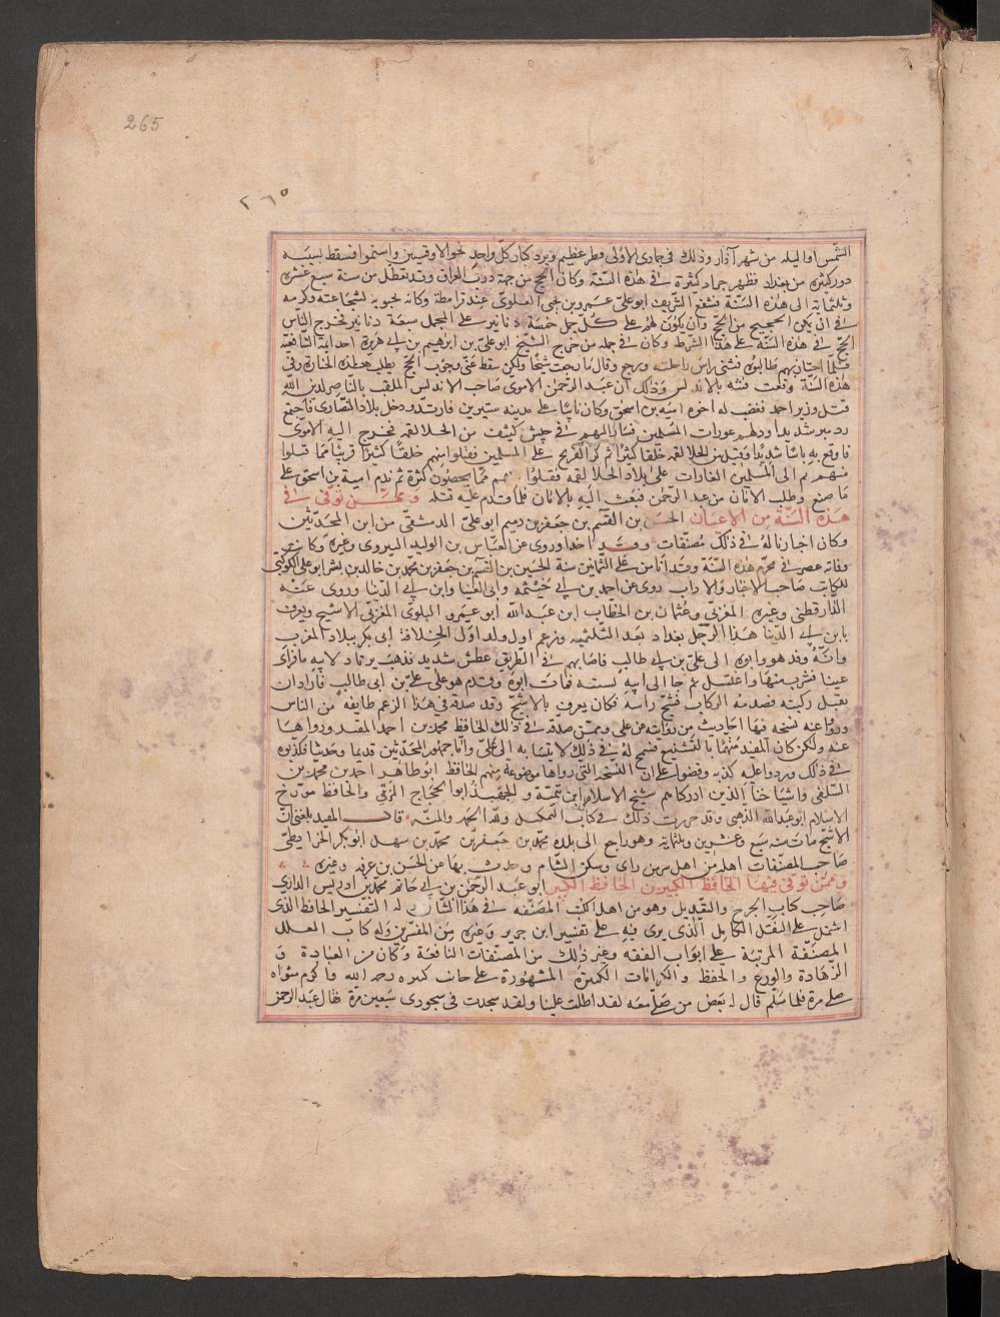 265
٢٦٥
الشمس او اليله من شهر آذار وذلك في جمادى الاولى مطر عظيم وبرد كبار كل واحد نحو الاوقيتين واستمر فسقط بسببه
دور كثيرة من بغداد وظهر جراد كثيرة في هذه السنة وكان الحج من جهة درب العراق وقد تعطل من سنة سبع عشرة
وثلثماية الى هذه السنة فشفع الشريف ابو على عمر بن يحيى العلوى عند قرامطة وكانوا يحبونه لشجاعته وكرمه
في ان يمكن الحجيج من الحج وان يكون لهم على كل جمل خمسة دنانير على المحمل سبعة دنانير فخرج الناس
للحج في هذه السنة على هذا الشرط وكان في جملة من خرج الشيخ ابو على بن ابي هريرة احد ايمة الشافعية
فلما اجتاز بهم طالبوه فثنى راس راحلته ورجع وقال ما رجعت شحا ولكن سقط عنى وجوب الحج بطلب هذه الخفارة وفي
هذه السنة وقعت فتنة بالاندلس وذلك ان عبد الرحمن الاموى صاحب الاندلس الملقب بالناصر لدين الله
قتل وزيره احمد فغضب له اخوه امية بن اسحق وكان نائبا على مدينة شنترين فارتد ودخل بلاد النصارى فاجتمع
ردمير ودلهم عورات المسلمين فسار اليهم في جيش كثيف من الجلالقة فخرج اليه الاموى
فاوقع به باسا شديدا وقتل من الجلالقة خلقا كثيرا ثم كر الفرنج على المسلمين فقتلوا منهم خلقا كثيرا قريبا مما قتلوا
منهم ثم الى المسلمين الغارات على بلاد الجلالقة فقتلوا منهم مما يحصون كثرة ثم ندم امية بن اسحق على
ما صنع وطلب الامان من عبد الرحمن فبعث اليه بالامان فلما قدم عليه قتله وممن توفى في
هذه السنة من الاعيان الحسن بن القسم بن جعفر بن دحيم ابو على الدمشقى من ابن المحدثين
وكان اخباريا له في ذلك مصنفات وقد حدث وروى عن العباس بن الوليد البيروتى وغيره وكانت
وفاته بمصر في محرم هذه السنة وقد اناف على الثمانين سنة الحسين بن القسم بن جعفر بن محمد بن خالد بن بشر ابو على الكوكبى
الكاتب صاحب الاخبار والاداب روى عن احمد بن ابي خيثمة وابى العينا وابن ابي الدنيا وروى عنه
الدارقطنى وغيره المغربى وعثمان بن الخطاب ابن عبد الله ابو عمرو البلوى المغربى الاشج ويعرف
بابن ابي الدنيا هذا الرجل بغداد بعد الثلثمية وزعم اول ولد اول الخلافة ابى بكر ببلاد المغرب
وانه وفد هو وابوه الى على بن ابي طالب فاصابهم في الطريق عطش شديد فذهب يرتاد لابيه ما فراى
عينا فشرب منها واغتسل ثم جا الى ابيه ليسقيه فمات ابوه وقدم هو على على بن ابى طالب فاراد ان
يقبل ركبته فصدمه الركاب فشج راسه فكان يعرف بالاشج وقد صدقه في هذا الزعم طايفة من الناس
ورووا عنه نسخه فيها احاديث من رواياته عن على وممن صدقه في ذلك الحافظ محمد بن احمد المفيد ورواها
عنه ولكن كان المفيد متهما بالتشيع فسمح له في ذلك لانتسابه الى على واما جمهور المحدثين قديما وحديثا فكذبوه
في ذلك وردوا عليه كذبه ونصوا على ان النسخة التى رواها موضوعة منهم الحافظ ابو طاهر احمد بن محمد بن
السلفى واشياخنا الذين ادركناهم شيخ الاسلام ابن تيمية والجهبذ ابو الحجاج المزى والحافظ مورخ
الاسلام ابو عبد الله الذهبى وقد حررت ذلك في كتاب التكميل ولله الحمد والمنة قال المفيد بلغنى ان
الاشج مات سنة سبع وعشرين وثلثماية وهو راجع الى بلده محمد بن جعفر بن محمد بن سهل ابو بكر الخرايطى
صاحب المصنفات اصله من اهل سر من راى وسكن الشام وحدث بها عن الحسن بن عرفة وغيره
وممن توفى فيها الحافظ الكبير بن الحافظ الكبير ابو عبد الرحمن بن ابي حاتم محمد بن ادريس الرازى
صاحب كتاب الجرح والتعديل وهو من اجل الكتب المصنفة في هذا الشان وله التفسير الحافظ الذى
اشتمل على النقل الكامل الذى يربى فيه على تفسير ابن جرير وغيره من المفسرين وله كتاب العلل
المصنفة المرتبة على ابواب الفقه وغير ذلك من المصنفات النافعة وكان من العبادة و
الزهادة والورع والحفظ والكرامات الكثيرة المشهورة على جانب كبير رحمه الله واكرم مثواه
صلى مرة فلما سلم قال له بعض من صلى معه لقد اطلت علينا ولقد سجدت في سجودى سبعين مرة فقال عبد الرحمن